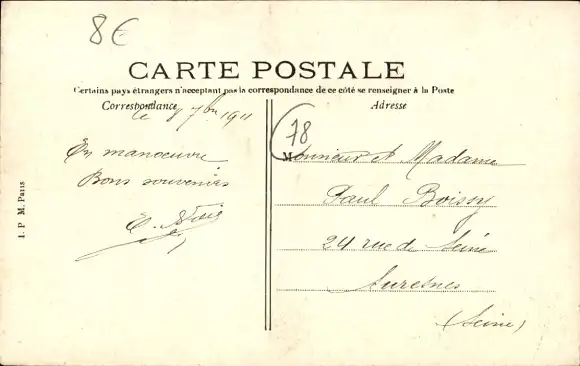 8€
CARTE POSTALE
Certains pays étrangers n'acceptant pas la correspondance de ce côté se renseigner à la Poste
Correspondance
Adresse
Le 7bre 1911
78
En manoeuvre
Bons souvenirs
Monsieur et Madame
Paul Boissy
24 rue de Seine
Suresnes
(Seine)
I. P. M. Paris